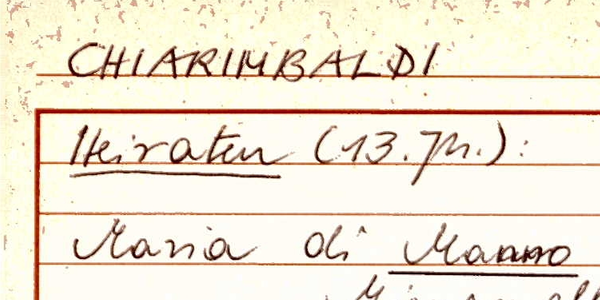 CHIARIMBALDI
Heiraten (13. Jh.):
Maria di Manno